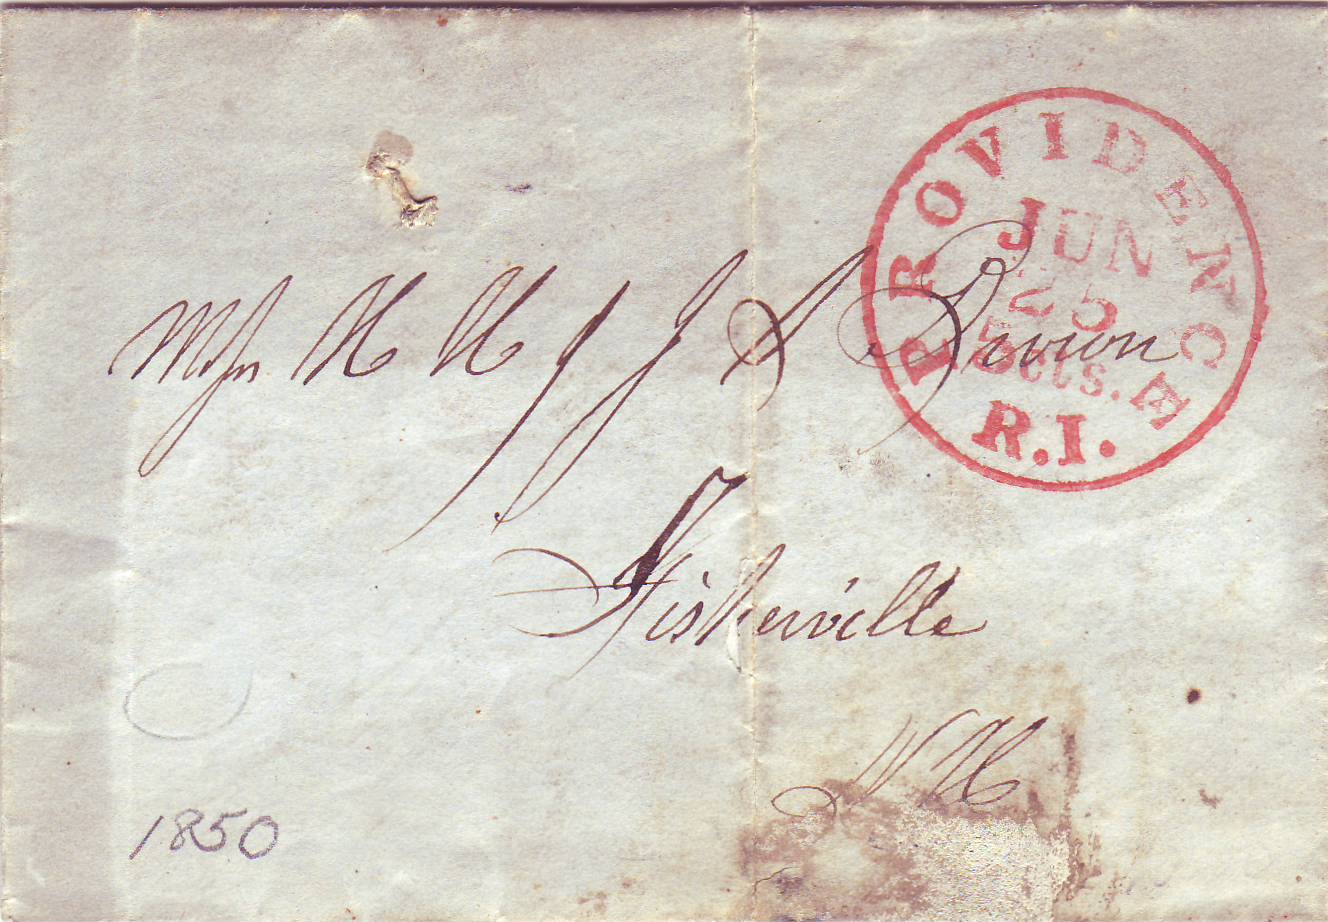 PROVIDENCE
JUN
25
5cts.
R.I.
Messrs H H & J S Brown
Fisherville
N H
1850